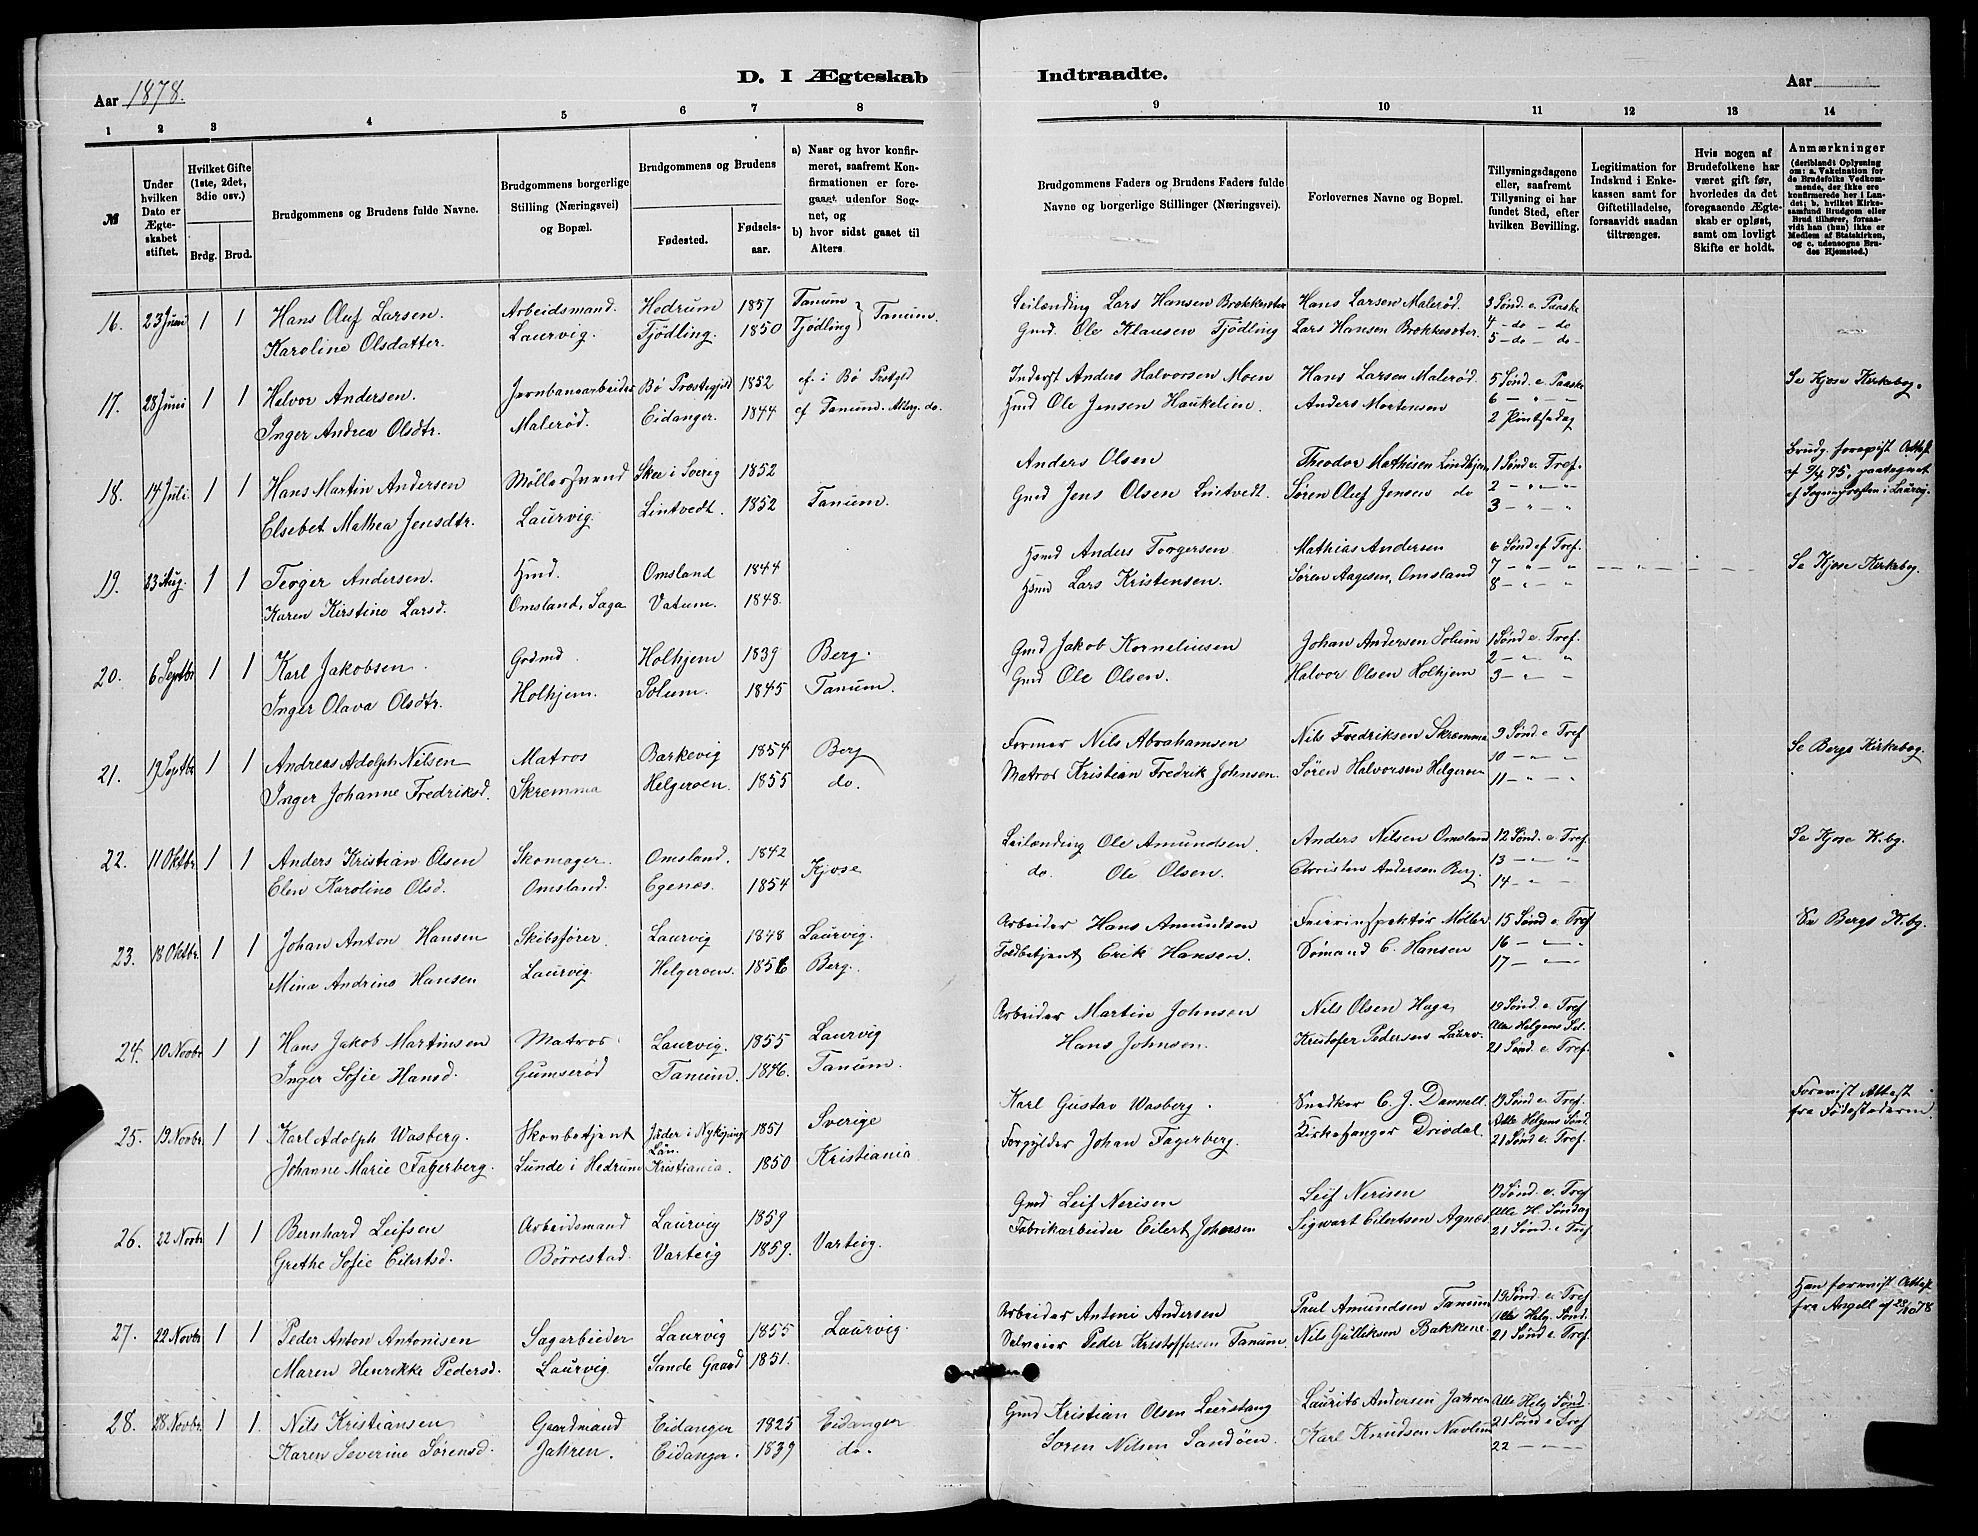 D. I Ægteskab Indtraadte.
Aar 1878. Aar
1 2 3 4 5 6 7 8 9 10 11 12 13 14
№
Under hvilken Dato er Ægteskabet stiftet.
Hvilket Gifte (1ste, 2det, 3die osv.)
Brdg. Brud.
Brudgommens og Brudens fulde Navne.
Brudgommens borgerlige Stilling (Næringsvei) og Bopæl.
Brudgommens og Brudens
Fødested. Fødselsaar.
a) Naar og hvor konfirmeret, saafremt Konfirmationen er foregaaet udenfor Sognet, og
b) hvor sidst gaaet til Alters.
Brudgommens Faders og Brudens Faders fulde Navne og borgerlige Stillinger (Næringsvei).
Forlovernes Navne og Bopæl.
Tillysningsdagene eller, saafremt Tillysning ei har fundet Sted, efter hvilken Bevilling.
Legitimation for Indskud i Enkekassen samt for Giftetilladelse, forsaavidt saadan tiltrænges.
Hvis nogen af Brudefolkene har været gift før, hvorledes da det foregaaende Ægteskab er opløst, samt om lovligt Skifte er holdt.
Anmærkninger (deriblandt Oplysning om: a. Vakcination for de Brudefolks Vedkommende, der ikke ere konfirmerede her i Landet; b. hvilket Kirkesamfund Brudgom eller Brud tilhører, forsaavidt han (hun) ikke er Medlem af Statskirken, og c. udensogns Brudes Hjemsted.)
16. 23 Juni 1 1 Hans Oluf Larsen. Arbeidsmand. Hedrum 1857 Tanum Tanum. Leilænding Lars Hansen Brekkesæter Hans Larsen Malerød. 3 Sønd. e. Paaske
Karoline Olsdatter. Laurvig. Tjødling. 1850 Tjødling Gmd. Ole Klausen Tjødling Lars Hansen Brekkesæter. 4 - do - do
5 - do - do -
17. 28 Juni 1 1 Halvor Andersen. Jernbanearbeider Bø Præstegjeld 1852 cf. i Bø Prstgld Inderst Anders Halvorsen Moen Hans Larsen Malerød 5 Sønd. e. Paaske Se Kjose Kirkebog.
Inger Andrea Olsdtr. Malerød. Eidanger. 1844 cf Tanum. Alterg. do. Hmd Ole Jensen Haukelien. Anders Mortensen 6 - " - "
2 Pintsedag
18. 14 Juli 1 1 Hans Martin Andersen Møllersvend Skee i Sverig 1852 Anders Olsen Theodor Mathisen Lindhjem 1 Sønd e. Tref. Brudg. forevist Attest
Elsebet Mathea Jensdtr. Laurvig. Lintvedt. 1852 Tanum. Gmd Jens Olsen Lintvedt. Søren Oluf Jensen do 2 - " - " af 9/4 75, paategnet
3 - " - " af Sognepræsten i Laurvig.
19. 23 Aug. 1 1 Teoger Andersen. Hmd. Omsland 1844 Hsmd Anders Torgersen Mathias Andersen 6 Sønd ef Tref. Se Kjose Kirkebog.
Karen Kirstine Larsd. Omsland, Saga Vatum. 1848. Hsmd Lars Kristensen. Søren Aagesen, Omsland 7 - " - "
8 - " - "
20. 6 Septbr 1 1 Karl Jakobsen. Grdmd. Holhjem 1839 Berg. Gmd Jakob Korneliusen Johan Andersen Solum 1 Sønd e. Tref.
Inger Olava Olsdtr. Holhjem. Solum. 1845 Tanum. Gmd Ole Olsen. Halvor Olsen Holhjem 2 - " "
3 - " - "
21. 19 Septbr 1 1 Andreas Adolph Nilsen Matros Barkevig 1854 Berg Former Nils Abrahamsen Nils Fredriksen Skremma 9 Sønd e Tref Se Bergs Kirkebog.
Inger Johanne Fredriksd. Skremma Helgeroen. 1855 do. Matros Kristian Fredrik Johnsen. Søren Halvorsen Helgeroen 10 - " - "
11 - " - "
22. 11 Oktbr 1 1 Anders Kristian Olsen Skomager. Omsland. 1842 Kjose Leilænding Ole Amundsen. Anders Nilsen Omsland 12 Sønd. e. Tref. Se Kjose K.bg.
Elen Karoline Olsd. Omsland. Egenæs. 1854 do. Ole Olsen. Christen Andersen Berg. 13 - " - "
14 - " - "
23. 18 Oktbr. 1 1 Johan Anton Hansen Skibsfører. Laurvig 1848 Laurvig. Arbeider Hans Amundsen Feierinspektør Møller 15 Sønd e Tref Se Bergs K.bg.
Mina Andrine Hansen Laurvig. Helgeroen. Berg. Toldbetjent Erik Hansen. Sømand C. Hansen 16 - " - "
17 - " - "
24. 10 Novbr 1 1 Hans Jakob Martinsen Matros. Laurvig. 1855 Laurvig Arbeider Martin Johnsen Nils Olsen Haga 19 Sønd. e. Tref
Inger Sofie Hansd. Gumserød Tanum. 1846. Tanum. Hans Johnsen. Kristofer Pedersen Laurv. Alle Helgens
21 Sønd. e. Tref.
25. 19 Novbr. 1 1 Karl Adolph Wasberg. Skovbetjent Jäder i Nyköping Län. 1851 Sverige Karl Gustav Wasberg. Snedker C. J. Dannell. 19 Sønd. e. Tref. Forevist Attest
Johanne Marie Fagerberg. Lunde i Hedrum Kristiania. 1850 Kristiania Forgylder Johan Fagerberg. Kirkesanger Drivdal. Alle Helgens Sønd. fra Fødestederne
21 Sønd e. Tref.
26. 22 Novbr 1 1 Bernhard Leifsen Arbeidsmand Laurvig 1859 Varteig. Gmd Leif Nerisen Leif Nerisen 19 Sønd. e. Tref
Grethe Sofie Eilertsd. Børrestad. Varteig 1859. Fabrikarbeider Eilert Johnsen Sigwart Eilertsen Agnes Alle H. Søndag
21 Sønd. e Tref
27. 22 Novbr 1 1 Peder Anton Antonisen Sagarbieder Laurvig 1855 Laurvig. Arbeider Antoni Andersen Paul Amundsen Tanum 19 Sønd. e. Tref Han forevist Attest
Maren Henrikke Pedersd. Laurvig. Sande Gaard 1851. Selveier Peder Kristoffersen Tanum. Nils Gulliksen Bakkene. Alle Helg. Sønd. fra Angell af 20/10 78
21 Sønd e. Tref.
28. 28 Novbr. 1 1. Nils Kristiansen Gaardmand Eidanger 1825 Eidanger Gmd Kristian Olsen Leerstang Laurits Andersen Jahren Alle Helg Sønd.
Karen Severine Sørensd. Jahren. Eidanger. 1839 do. Søren Nilsen Sandøen. Karl Knudsen Navlum 21 Sønd e Tref
22 - " - "